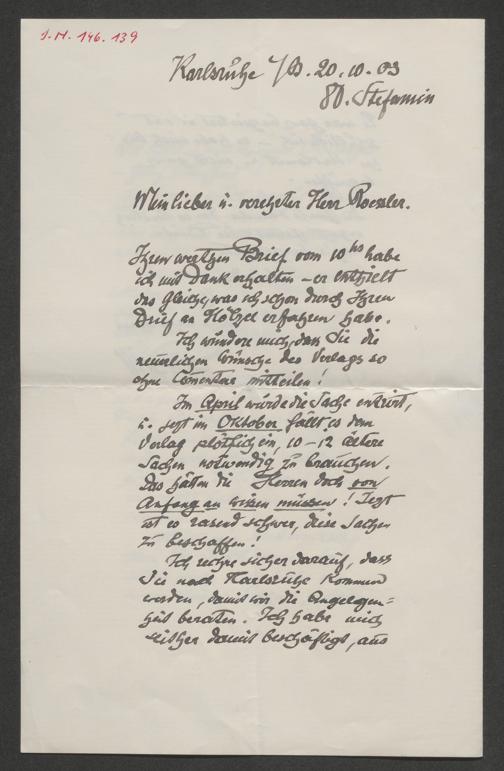 J.N. 146.139
Karlsruhe i/B. 20.10.03
80. Stefanien
Mein lieber u. verehrter Herr Roessler.
Ihren werthen Brief vom 10ten habe
ich mit Dank erhalten – er enthielt
das Gleiche, was ich schon durch Ihren
Brief an Hölzel erfahren habe.
Ich wundere mich, dass Sie die
neuerlichen Wünsche des Verlags so
ohne Comentare mittheilen!
Im April wurde die Sache entrirt,
u. jetzt im Oktober fällt es dem
Verlag plötzlich ein, 10–12 ältere
Sachen notwendig zu brauchen.
Das hätten die Herren doch von
Anfang an wissen müssen! Jetzt
ist es rasend schwer, diese Sachen
zu beschaffen!
Ich rechne sicher darauf, dass
Sie nach Karlsruhe kommen
werden, damit wir die Angelegen=
heit beraten. Ich habe mich
seither damit beschäftigt, aus